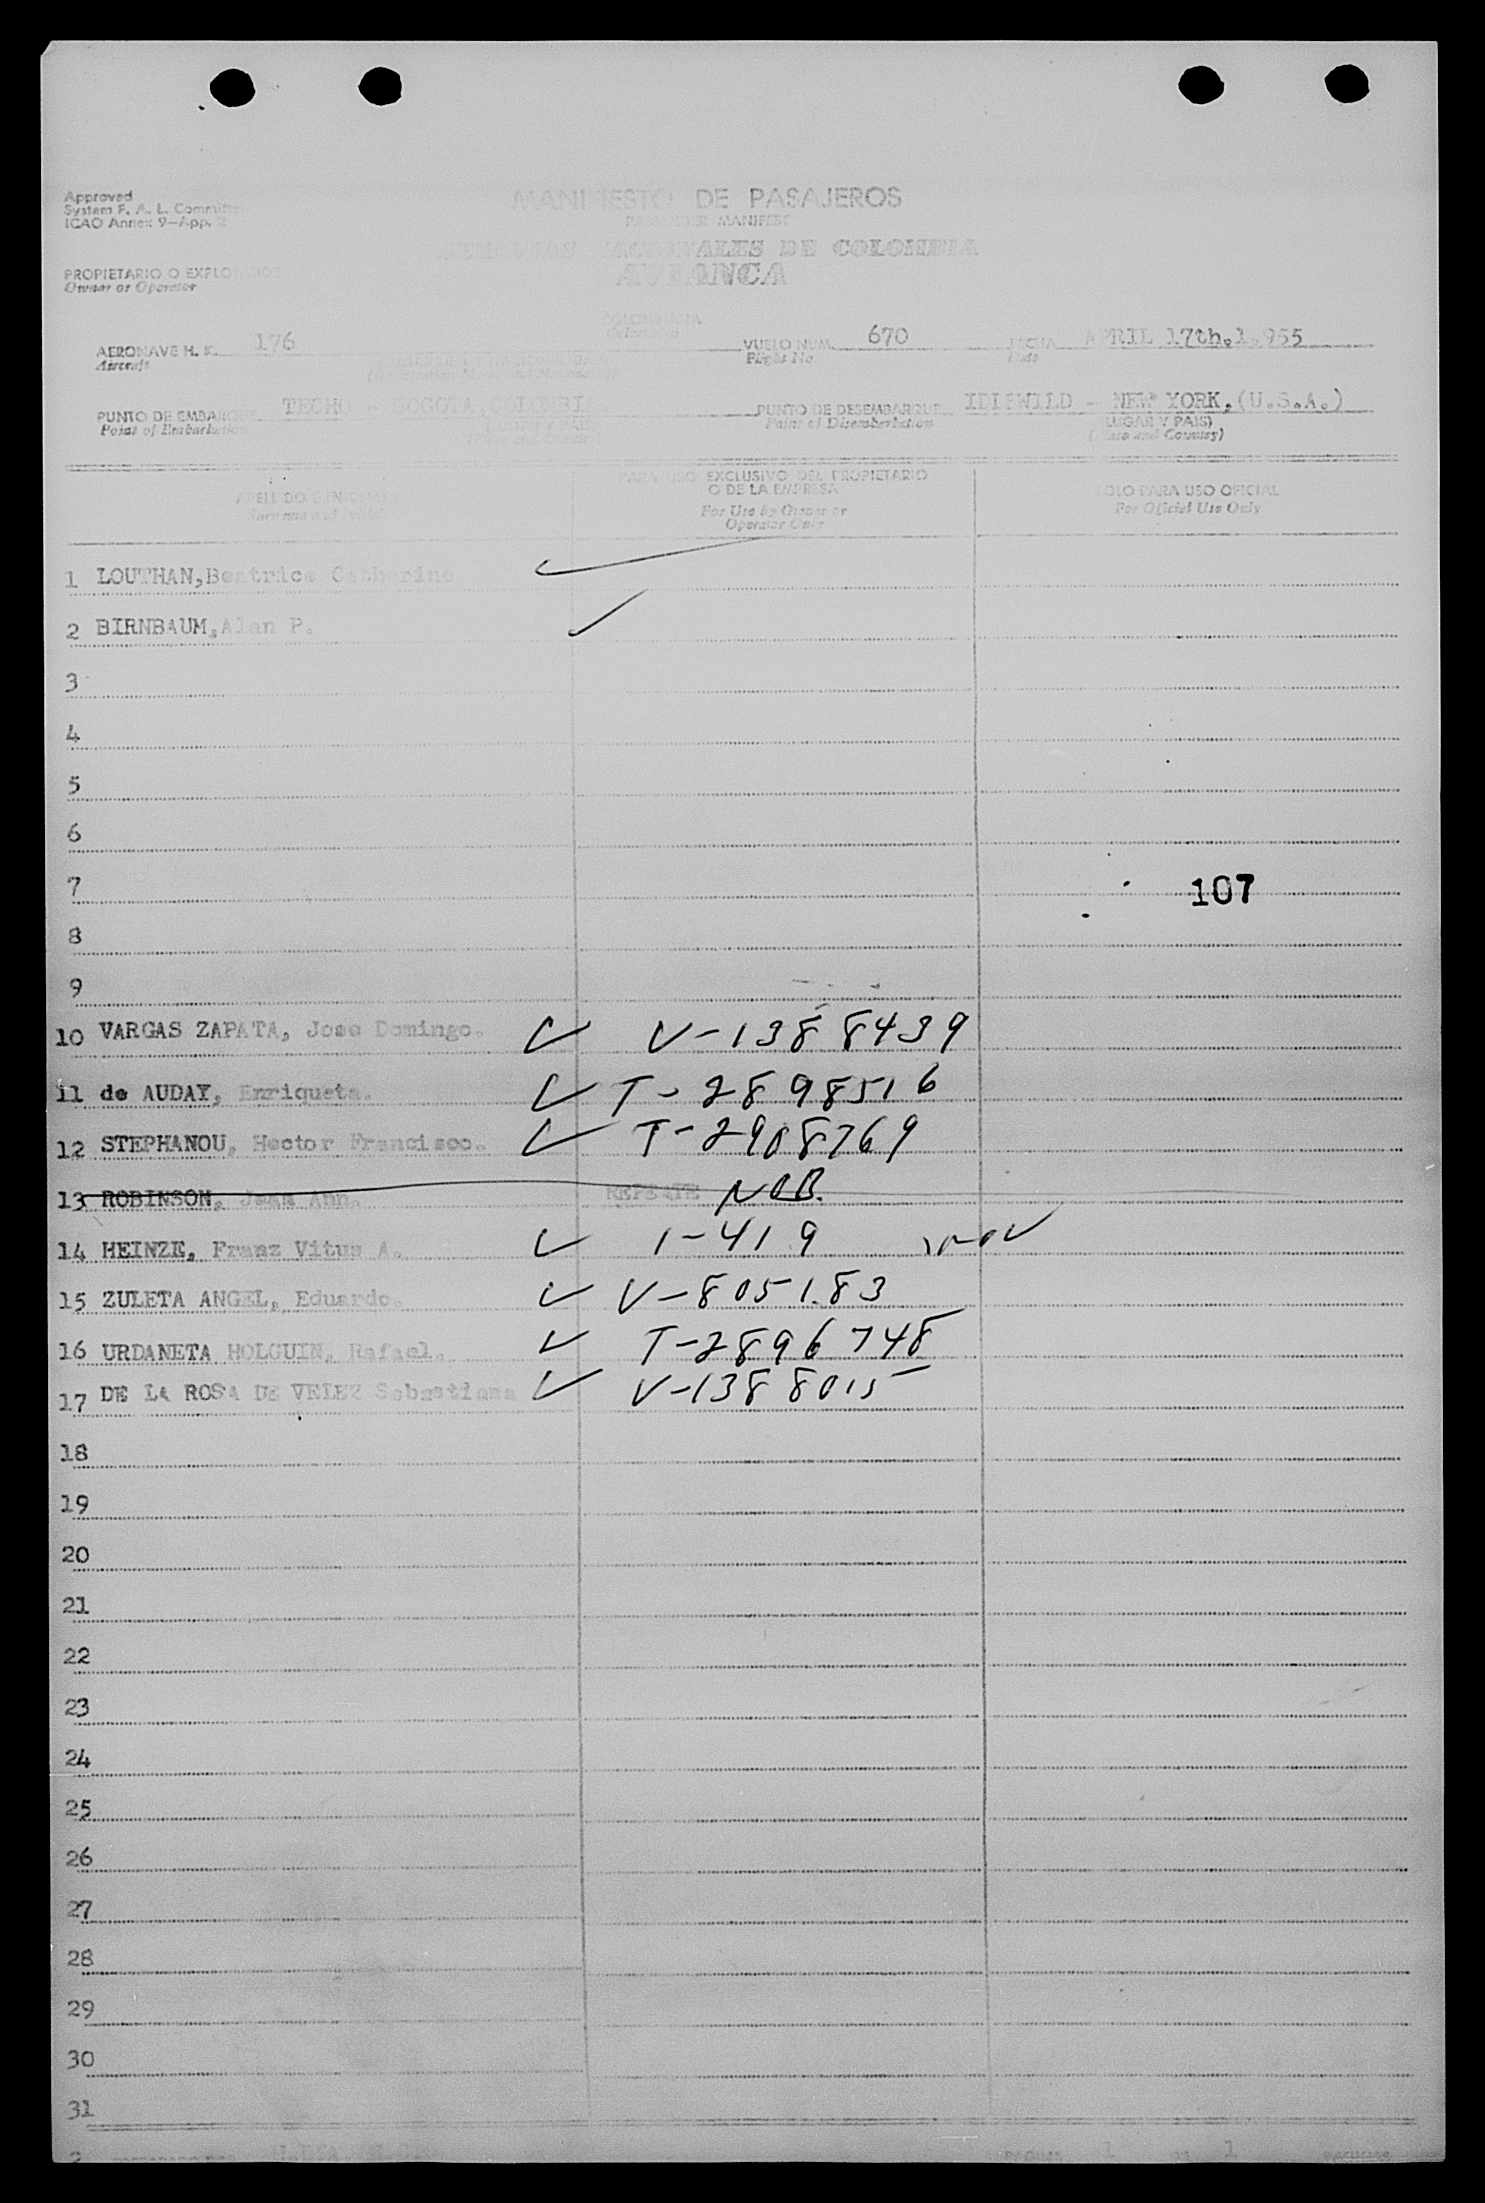 Approved
System F. A. L. Committee
ICAO Annex 9-App. 2
MANIFIESTO DE PASAJEROS
PASSENGER MANIFEST
NACIONALES DE COLOMBIA
AVIANCA
PROPIETARIO O EXPLOTADOR
Owner or Operator
AERONAVE H. K. 176
Aircraft
VUELO NUM. 670
Flight No
FECHA APRIL 17th,1,955
Date
PUNTO DE EMBARQUE TECHO - BOGOTA COLOMBIA
Point of Embarkation
PUNTO DE DESEMBARQUE IDLEWILD - NEW YORK,(U.S.A.)
Point of Disembarkation
(LUGAR Y PAIS)
(Place and Country)
PARA USO EXCLUSIVO DEL PROPIETARIO
O DE LA EMPRESA
For Use by Owner or
Operator Only
SOLO PARA USO OFICIAL
For Official Use Only
1 LOUTHAN,Beatrice Catherine
2 BIRNBAUM,Alan P.
3
4
5
6
7 107
8
9
10 VARGAS ZAPATA, Jose Domingo. ✓ V-1388439
11 de AUDAY, Enriqueta. ✓ T-2898516
12 STEPHANOU, Hector Francisco. ✓ T-2908769
13 ROBINSON, Jean Ann. NOB.
14 HEINZE, Franz Vitus A. ✓ 1-419
15 ZULETA ANGEL, Eduardo. ✓ V-805183
16 URDANETA HOLGUIN, Rafael. ✓ T-2896748
17 DE LA ROSA DE VELEZ Sebastiana ✓ V-1388015
18
19
20
21
22
23
24
25
26
27
28
29
30
31
1 1